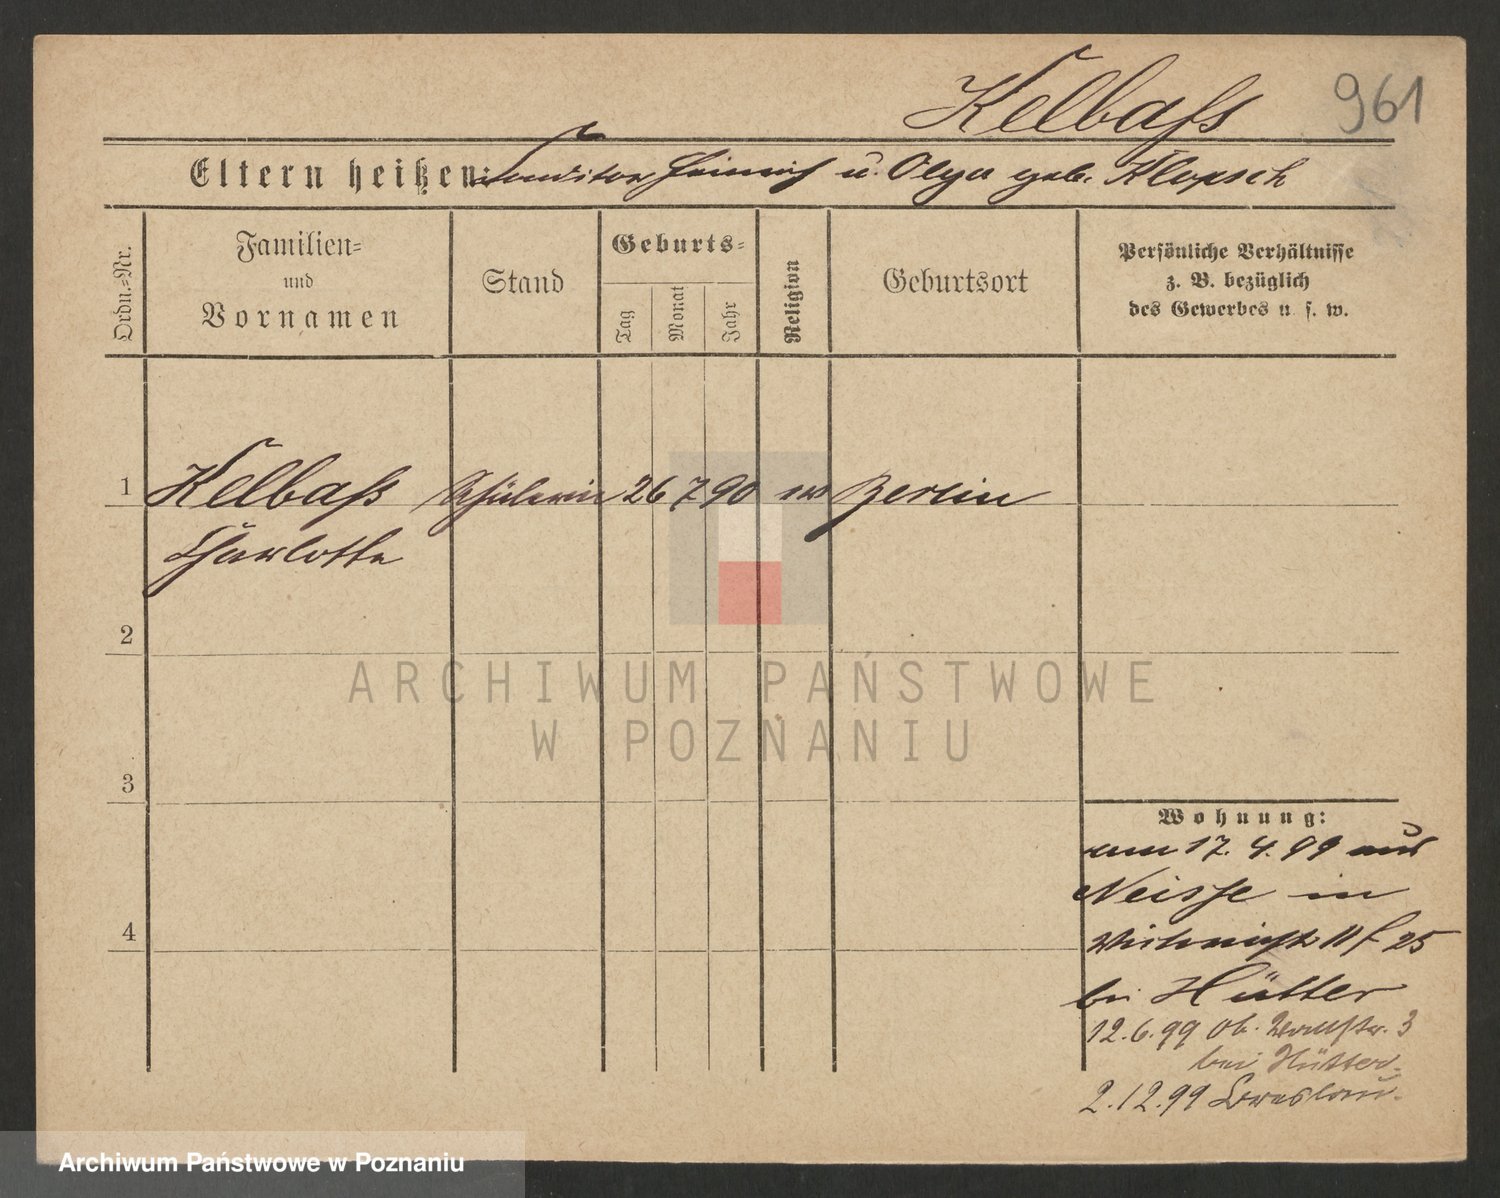 Kelbaß 961
Eltern heißen: Konditor Heinrich u. Olga geb. Klopsch
Ordn.-Nr.
Familien-
und
Vornamen
Stand
Geburts-
Tag
Monat
Jahr
Religion
Geburtsort
Persönliche Verhältnisse
z. B. bezüglich
des Gewerbes u. s. w.
1 Kelbaß Schülerin 26 7 90 ev Berlin
Charlotte
2
3
4
Wohnung:
am 17. 4. 99 aus
Neisse in
25
bei Hütter
12.6.99 Ob. 3
bei Hütter.
2.12.99 Breslau.
ARCHIWUM PAŃSTWOWE
W POZNANIU
Archiwum Państwowe w Poznaniu